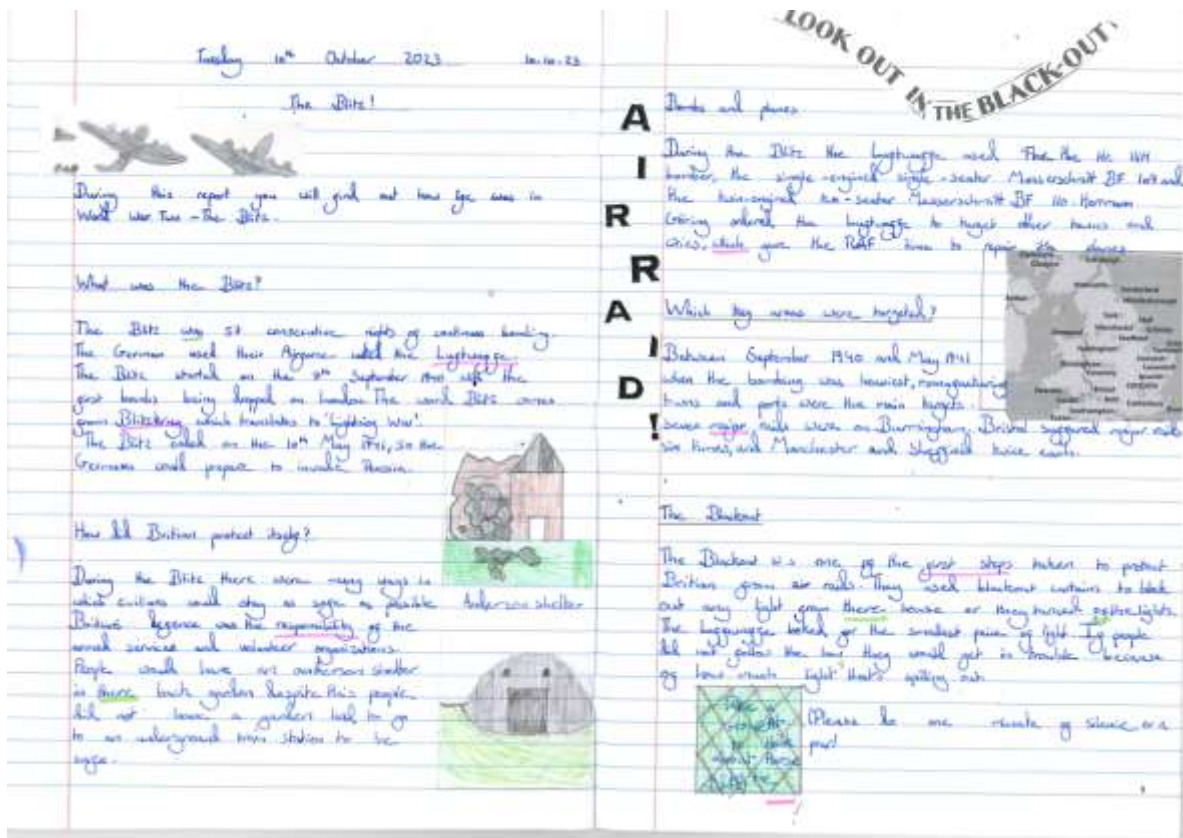 Tuesday 10th October 2023 10.10.23
The Blitz!
During this report you will find out how life was in
World War Two - The Blitz.
What was the Blitz?
The Blitz was 57 consecutive nights of continuous bombing.
The German used their Airforce called the Luftwaffe.
The Blitz started on the September 1940 with the
first bombs being dropped on London. The word Blitz comes
from Blitzkrieg which translates to 'lighting War'.
The Blitz ended on the 10th May 1941, so the
Germans could prepare to invade Russia.
How did Britian protect itself?
During the Blitz there were many ways in
which civilians could stay as safe as possible
defence was the responsibility of the
armed services and volunteer organisations.
People would have an anderson shelter
in there back garden despite this people
did not have a garden had to go
to an underground train station to be
safe.
Anderson shelter
LOOK OUT IN THE BLACK-OUT
AIR RAID!
Bombs and planes
During the Blitz the Luftwaffe used the He 111H
bomber, the single-engined single-seater Messerschmitt BF 109 and
the twin-engined two-seater Messerschmitt BF 110. Hermann
Göring ordered the Luftwaffe to target other towns and
cities, which gave the RAF time to repair
Which key areas were targeted?
Between September 1940 and May 1941
when the bombing was heaviest, manufacturing
towns and ports were the main targets.
seven major raids were on Birmingham, Bristol suffered major raids
six times, and Manchester and Sheffield twice each.
The Blackout
The Blackout was one of the first steps taken to protect
Britian from air raids. They used blackout curtains to block
out any light from there house or they turned off the lights.
The looked for the smallest of light If people
did not follow the law they would get in trouble because
of how much light that's out.
Take a
moment
to
about these
(Please do one minute of silence or a